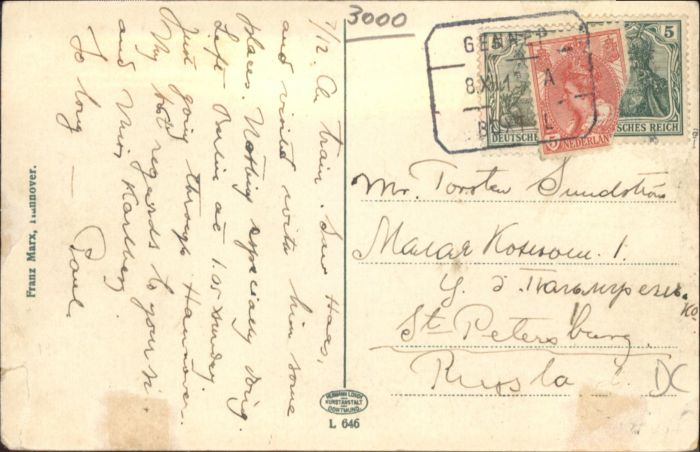 3000
GENNEP
8 XII 1 A
5
5
DEUTSCHES
NEDERLAND
SCHES REICH
7/12. On train. Saw Haas,
and visited with him some
places. Nothing especially doing.
Left Berlin at 1.05 Sunday.
Just going through Hannover.
My regards to your
and Miss
So long —
Paul.
Mr. Torsten Sundström
Малая Конюш. 1.
у. г.
St Petersburg.
Russla
DC
Franz Marx, Hannover.
HERMANN LORCH
KUNSTANSTALT
DORTMUND.
L 646